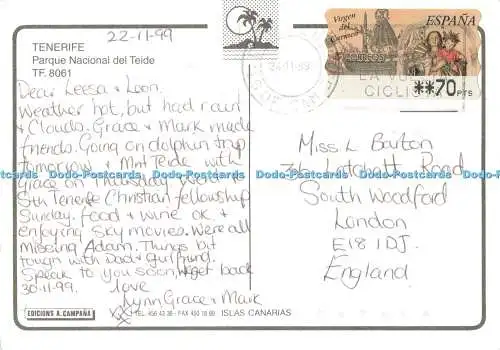 22-11-99
TENERIFE
Parque Nacional del Teide
TF. 8061
Dear Leesa & Leon.
Weather hot, but had rain
& Clouds. Grace & Mark made
friends. Going on dolphin trip
tomorrow & Mnt Teide with
Grace on Thursday. Went to
Sth Tenerife Christian fellowship
Sunday. Food & wine ok &
enjoying Sky movies. We're all
missing Adam. Things bit
tough with Dad & girlfriend.
Speak to you soon, get back
30-11-99. love
Lynn, Grace & Mark
EDICIONS A. CAMPAÑA
TEL. 456 43 36 - FAX 450 18 69 ISLAS CANARIAS
Virgen del Carmen
ESPAÑA
CORREOS
**70 PTS
LA VU
CICLIS
Miss L Barton
Latchett Road
South Woodford
London
E18 1DJ.
England
Dado-Postcards Dado-Postcards Dado-Postcards Dado-Postcards Dado-Postcards